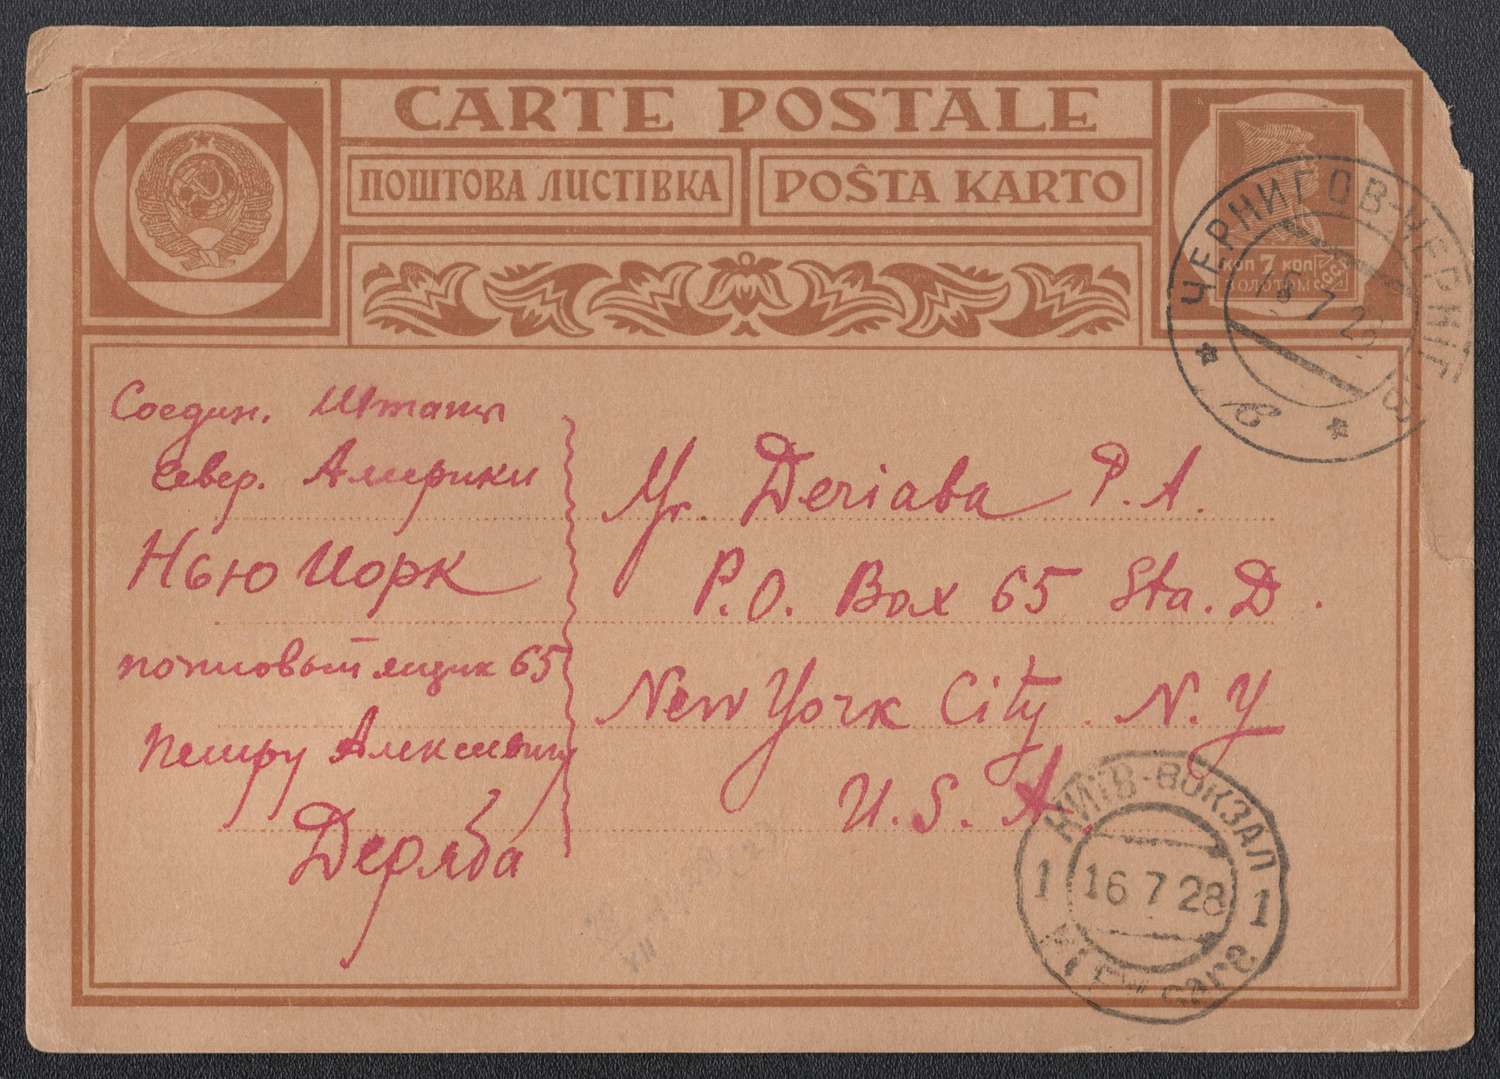 CARTE POSTALE
ПОШТОВА ЛИСТІВКА
POŜTA KARTO
КОП 7 КОП
ЗОЛОТОМ
ЧЕРНИГОВ-ЧЕРНІГІВ
7 28
в
Соедин. Штаты
Север. Америки
Нью Иорк
почтовый ящик 65
Петру Алексеевичу
Деряба
Mr. Deriaba P. A.
P.O. Box 65 Sta. D.
New York City. N. Y
U. S. A.
КИЇВ-ВОКЗАЛ
1 16 7 28 1
Kiew gare